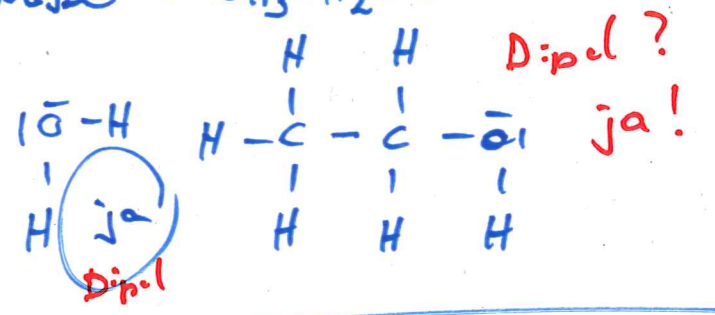 H H Dipol ?
|Ō-H H-C-C-Ō| ja!
H ja H H H
Dipol